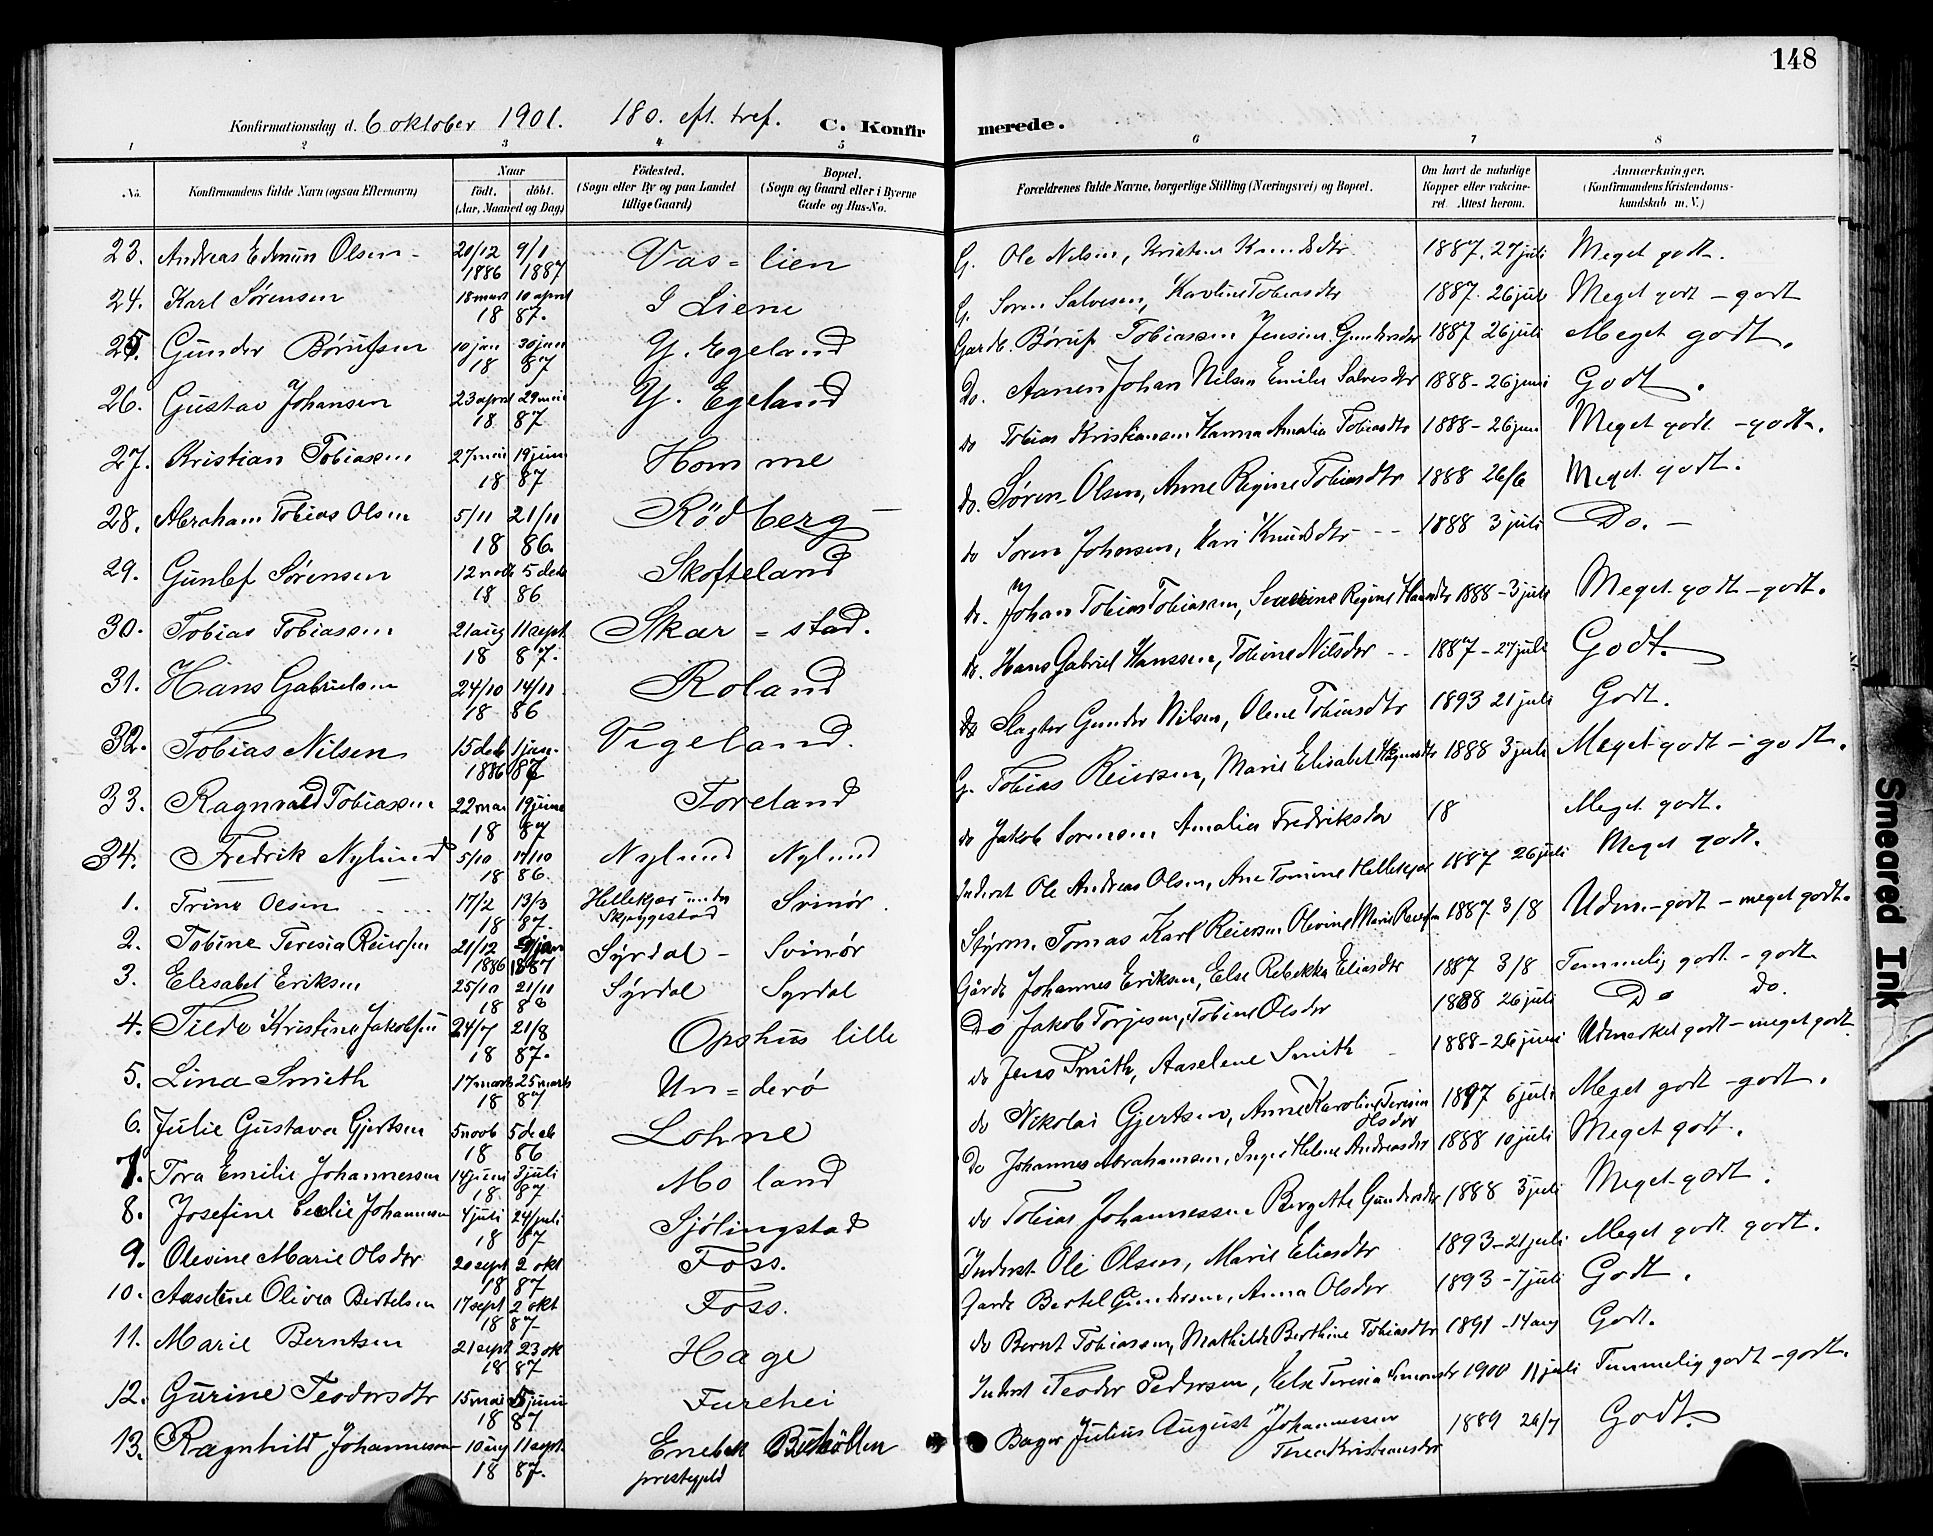 148
Konfirmationsdag d. 6 oktober 1901. 180. eft. tref. C. Konfirmerede.
1 2 3 4 5 6 7 8
No. Konfirmandens fulde Navn (ogsaa Efternavn) Naar født. døbt. (Aar, Maaned og Dag) Födested. (Sogn eller By og paa Landet tillige Gaard) Bopæl. (Sogn og Gaard eller i Byerne Gade og Hus-No. Forældrenes fulde Navne, borgerlige Stilling (Næringsvei) og Bopæl. Om havt de naturlige Kopper eller vakcineret. Attest herom. Anmærkninger. (Konfirmandens Kristendomskundskab m. V.)
23. Andreas Edmun Olsen 20/12 1886 9/1 1887 Vas=lien G. Ole Nilsen, Kristine Knudsdtr 1887. 27 juli Meget godt.
24. Karl Sørensen 18 mars 10 april 1887. I Liene G. Soren Salvesen, Karoline Tobiasdtr 1887. 26 juli Meget godt - godt
25. Gunder Børufsen 10 jan 30 jan 1887 Y. Egeland Gardb. Børuf Tobiassen Jensine Gundersdtr 1887 26 juli Meget godt.
26. Gustav Johansen 23 april 29 mai 1887. Y. Egeland Do. Aanen Johan Nilsen Emilie Salvesdtr 1888 - 26 juni Godt.
27. Kristian Tobiassen 27 mai 19 juni 1887 Homme do Tobias Kristiansen Hanna Amalia Tobiasdtr 1888 - 26 juni Meget godt - godt.
28. Abraham Tobias Olsen 5/11 21/11 1886. Rödberg do. Søren Olsen, Anne Regine Tobiasdtr 1888 26/6 Meget godt.
29. Gunlef Sørensen 12 novb 5 decb 1886 Skofteland do Soren Johansen, Kari Knudsdtr 1888 3 juli Do.
30. Tobias Tobiassen 21 aug 11 sept 1887. Skar=stad. do. Johan Tobias Tobiassen, Severine Regine Hansdtr 1888 - 3 juli Meget godt - godt.
31. Hans Gabrielsen 24/10 14/11 1886 Roland do. Hans Gabriel Hanssen, Tobine Nilsdtr 1887 - 27 juli Godt.
32. Tobias Nilsen 15 decb 1886 1 jan. 87 Vigeland. do Slagter Gunder Nilsen, Olene Tobiasdtr 1893 21 juli Godt.
33. Ragnvald Tobiassen 22 mai 19 juni 1887 Foreland G. Tobias Reiersen, Marie Elisabet 1888 3 juli Meget godt - godt.
34. Fredrik Nylund 5/10 17/10 1886. Nylund Nylund do Jakob Sorensen Amalia Fredriksdtr 18 Meget godt.
1. Trine Olsen 17/2 13/3 1887. Hellekjær under Skjeggestad Svinör. Inderst Ole Andreas Olsen, Ane Tomine Hellekjær 1887 26 juli Meget godt.
2. Tobine Teresia Reiersen 21/12 1886 9 jan 1887 Syrdal - Svinör Styrm. Tomas Karl Reiersen Olevine Marie 1887 3/8 Udm. - godt - meget godt.
3. Elisabet Eriksen 25/10 21/11 1886 Syrdal Syrdal Gårdb Johannes Eriksen, Else Rebekka Eliasdtr 1887 3/8 Temmelig godt - godt
4. Tilda Kristine Jakobsen 24/7 21/8 1887. Opshus lille Do Jakob Torjesen, Tobine Olsdtr 1888 26 juli Do do.
5. Lina Smith 17 mars 25 mars 1887 Un=derö do Jens Smith, Aaselene Smith 1888 - 26 juni Udmerket godt - meget godt
6. Julie Gustava Gjertsen 5 novb 5 decb 1886 Lohne do Nikolai Gjertsen, Anne Karoline Teresia Olsdtr 1897 6 juli Meget godt - godt.
7. Tora Emilie Johannessen 14 juni 3 juli 1887 Moland Do Johannes Abrahamsen, Inger Helene Andreasdtr 1888 10 juli Meget godt.
8. Josefine Cecilie Johannessen 4 juli 24 juli 1887 Sjölingstad do Tobias Johannessen Bergette Gundersdtr 1888 3 juli Meget godt.
9. Olevine Marie Olsdtr 20 sept 2 okt 1887 Foss. Inderst Ole Olsen, Marie Eliasdtr 1893 - 21 juli Meget godt godt.
10. Aaselene Olivia Bertelsen 17 sept 2 okt 1887 Foss. Gardb Bertel Gundersen, Anna Olsdtr 1893 - 7 juli Godt.
11. Marie Berntsen 21 sept 23 ok 1887. Hage do Bernt Tobiassen, Mathilde Berthine Tobiasdtr 1891 - 14 aug Godt.
12. Gurine Teodorsdtr 15 mai 5 juni 1887 Furehei Inderst Teodor Pedersen, Else Teresia Simonsdtr 1900 11 juli Temmelig godt - godt.
13. Ragnhild Johannessen 10 aug 11 sept. 1887. Enebak prestegjeld Bager Julius August Johannessen Tina Kristiansdtr 1889 26/7 Godt.
Smeared Ink